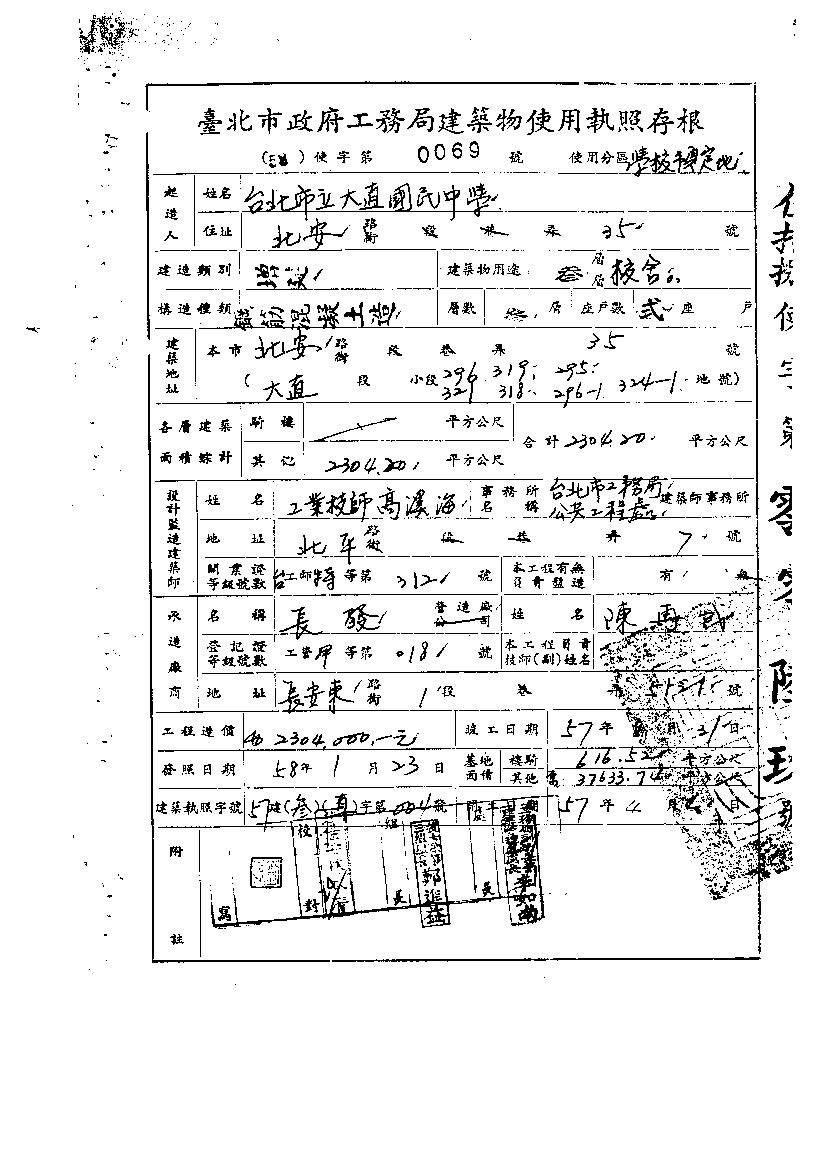 臺北市政府工務局建築物使用執照存根
使字第 0069 號 使用分區 學校預定地
起造人 姓名 台北市立大直國民中學
住址 北安 路街 段 巷 弄 35 號
建造類別 增建 建築物用途 叁層 層 校舍
構造種類 鋼筋混凝土造 層數 叁 層 座戶數 弍 座 戶
建築地址 本市 北安 路街 段 巷 弄 35 號
(大直 段 小段 296 319 295
329 318 296-1 324-1 地號)
各層建築面積總計 騎樓 平方公尺 合計 2304.20 平方公尺
其他 2304.20 平方公尺
設計監造建築師 姓名 工業技師高溪海 事務所名稱 台北市工務局公共工程處 建築師事務所
地址 北平 路街 段 巷 弄 7 號
開業證等級號數 台工師特 等第 312 號 本工程有無負責監造 有 無
承造廠商 名稱 長發 營造廠公司 姓名 陳再
登記證等級號數 工營甲 等第 0181 號 本工程負責技師(副)姓名
地址 長安東 路街 1 段 巷 弄 號
工程造價 2304,000.-元 竣工日期 57年 月31日
發照日期 58年1月23日 基地面積 騎樓 616.52 平方公尺
其他 37633.74 平方公尺
建築執照字號 57建(叁)(真)字第004號 57年 月 日
附註
寫 校對 組長 鄭進益 長 李如南
使字第零零陸玖號